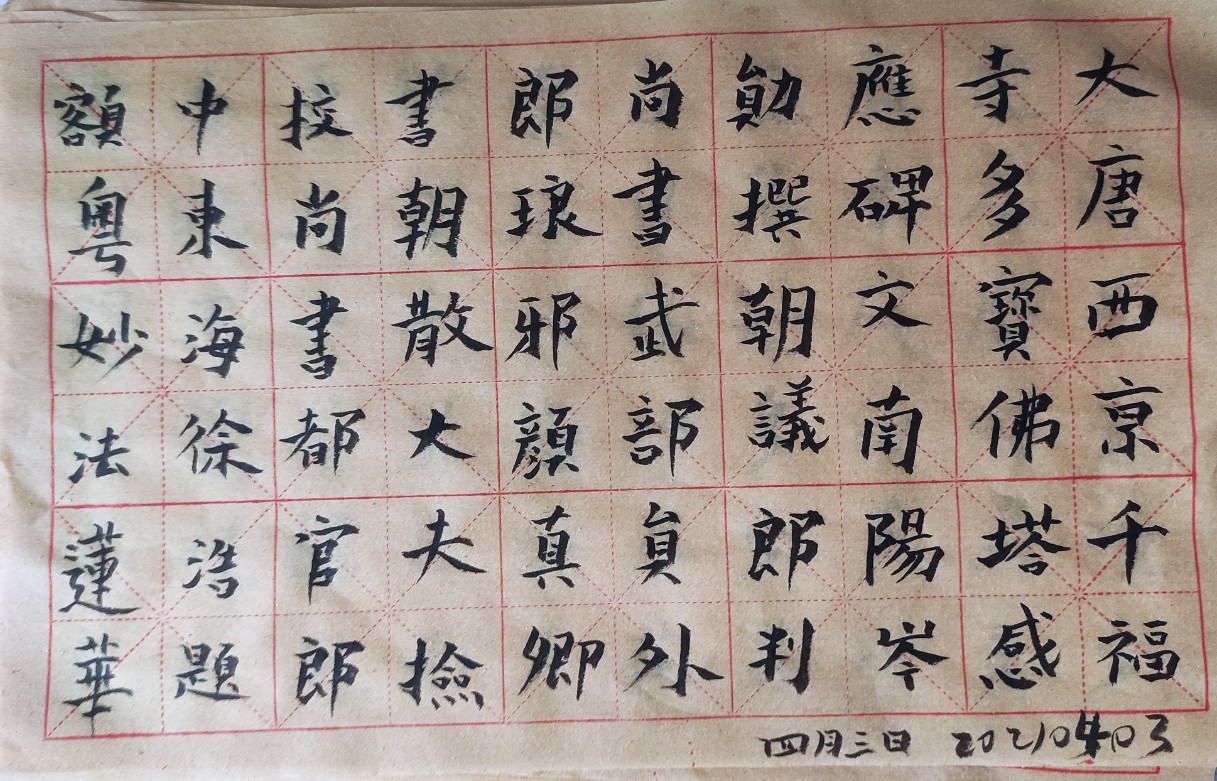 大唐西京千福
寺多寶佛塔感
應碑文南陽岑
勛撰朝議郎判
尚書武部員外
郎琅邪顏真卿
書朝散大夫撿
挍尚書都官郎
中東海徐浩題
額粵妙法蓮華
四月三日 20210403